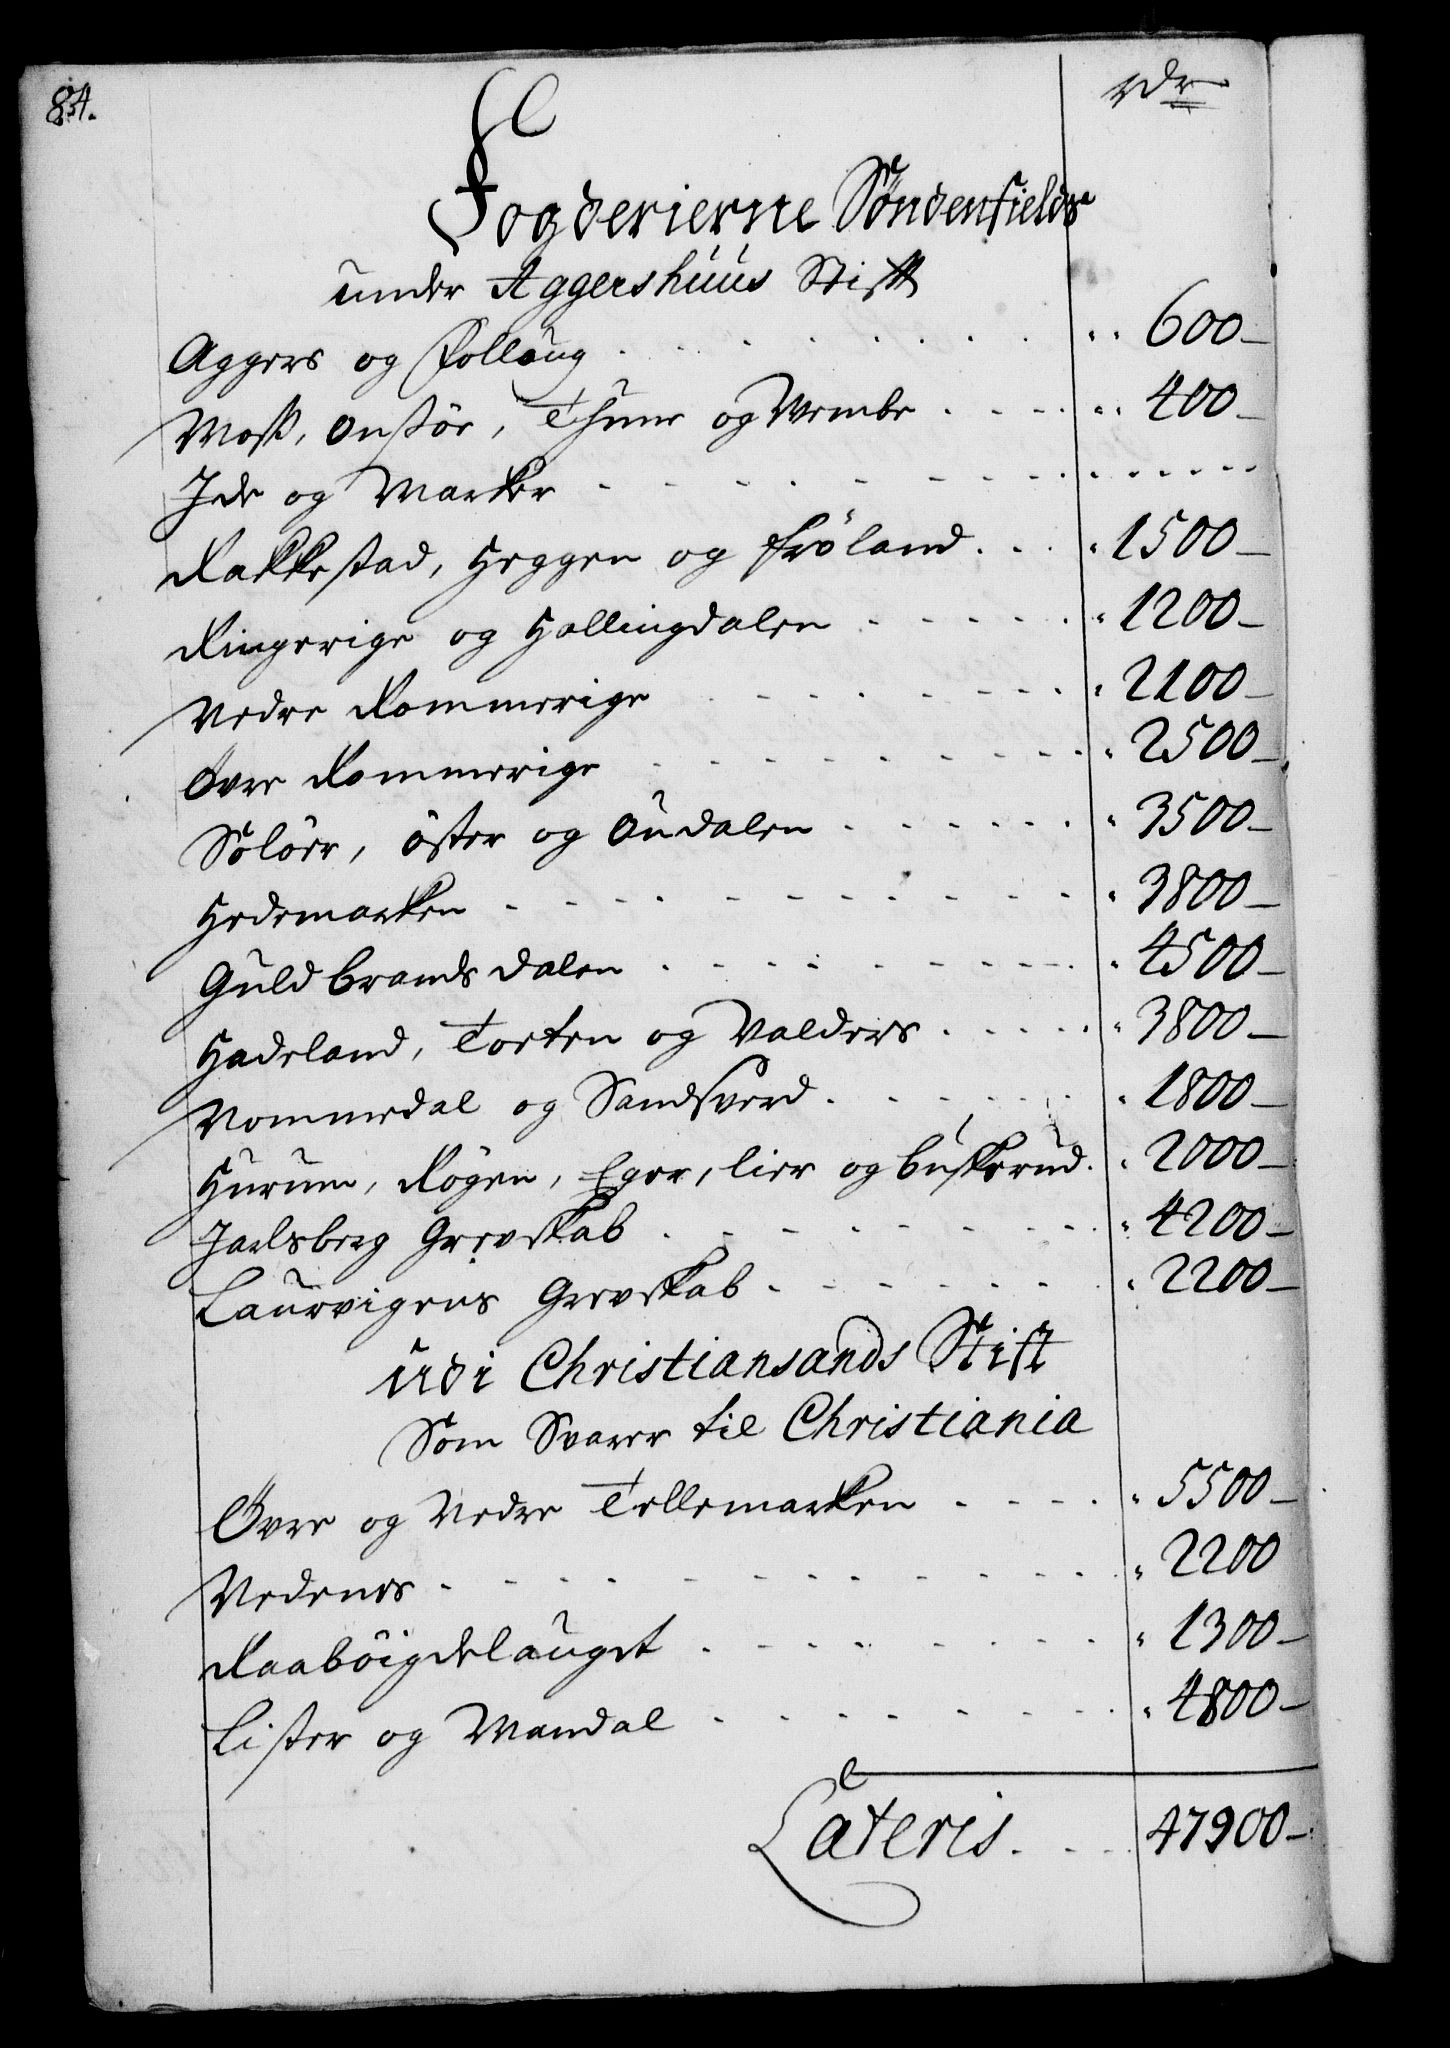 84.
rdr
Fogderierne Søndenfields
under Aggershuus Stift
Aggers og Follaug . . . . . . . 600 –
Moss, Onsöe, Thune og Wembe . . . . 400 –
Ide og Marker . . . . . . . . . .
Rakkestad, Heggen og Fröland . . . 1500 –
Ringerige og Hallingdalen . . . . . 1200 –
Nedre Rommerige . . . . . . 2100 –
Ovre Rommerige . . . . . . . 2500 –
Solöer, öster og Oudalen . . . . . 3500 –
Hedemarken . . . . . . . . . 3800 –
Guldbrandsdalen . . . . . . . 4500 –
Hadeland, Toeten og Valders . . . . 3800 –
Nommedal og Sandsverd . . . . . 1800 –
Hurum, Rögen, Eger, lier og buskerud . 2000 –
Jarlsberg Grevskab . . . . . . . 4200 –
Laurvigens Grevskab . . . . . . 2200 –
udi Christiansands Stift
Som Svarer til Christiania
Øvre og Nedre Tellemarken . . . . 5500 –
Nedenes . . . . . . . . . . 2200
Raaböigdelauget . . . . . . . 1300 –
Lister og Mandal . . . . . . . 4800 –
Lateris . . . 47900 –